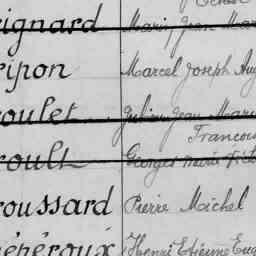 ignard Marin, Jean Mar
ipon Marcel Joseph Aug
oulet Julien Jean Marie
Francois
oult Georges Marie
oussard Pierre Michel
épéroux Henri Etienne Eug